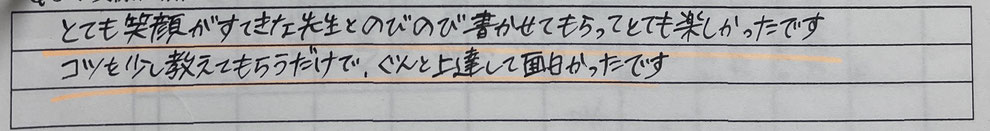 とても笑顔がすてきな先生とのびのび書かせてもらってとても楽しかったです
コツを少し教えてもらうだけで、ぐんと上達して面白かったです